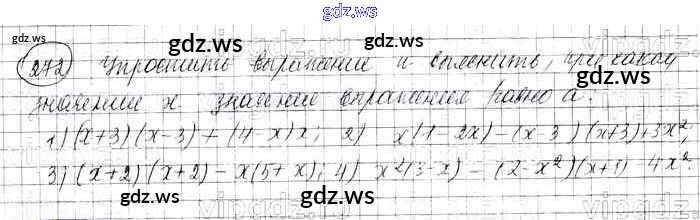 gdz.ws
gdz.ws gdz.ws gdz.ws
272 Упростить выражение и выяснить, при каком
значении x значение выражения равно a:
1) (x+3)(x-3)+(4-x)x; 2) x(1-2x)-(x-3)(x+3)+3x²,
3) (x+2)(x+2)-x(5+x); 4) x²(3-x)-(2-x²)(x+1) 4x².
gdz.ws gdz.ws
gdz.ws